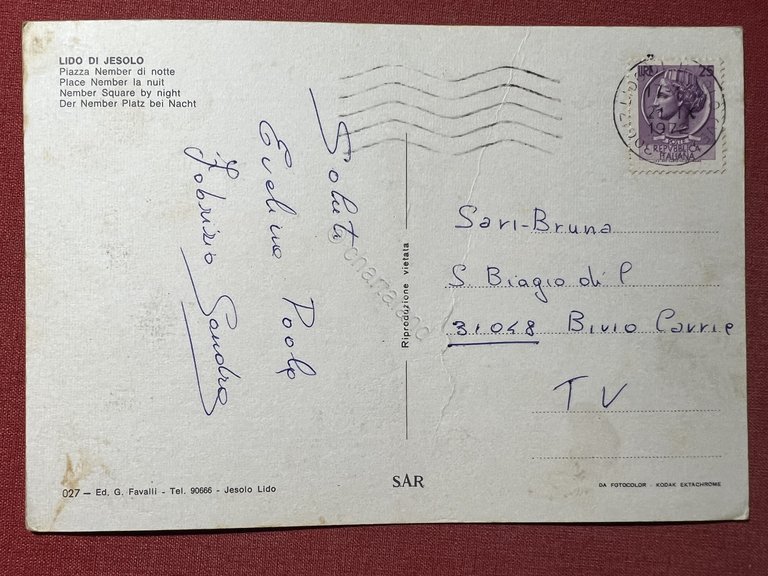 LIDO DI JESOLO
Piazza Nember di notte
Place Nember la nuit
Nember Square by night
Der Nember Platz bei Nacht
LIRE 25
21
1972
POSTE
REPVBBLICA
ITALIANA
Saluti
Eveline Paolo
Fabrizio Sandra
Riproduzione vietata
Sari-Bruna
S. Biagio di C
31048 Bivio Carrie
TV
027 — Ed. G. Favalli - Tel. 90666 - Jesolo Lido
SAR
DA FOTOCOLOR - KODAK EKTACHROME